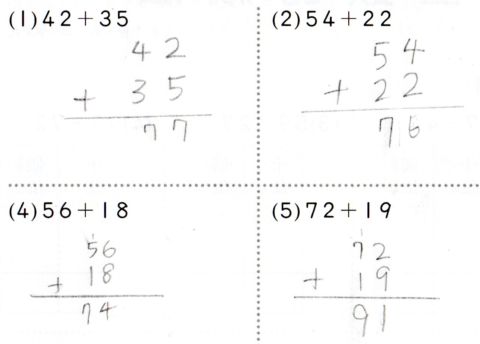 (1)42+35
42
+ 35
77
(2)54+22
54
+ 22
76
(4)56+18
1
56
+ 18
74
(5)72+19
1
72
+ 19
91